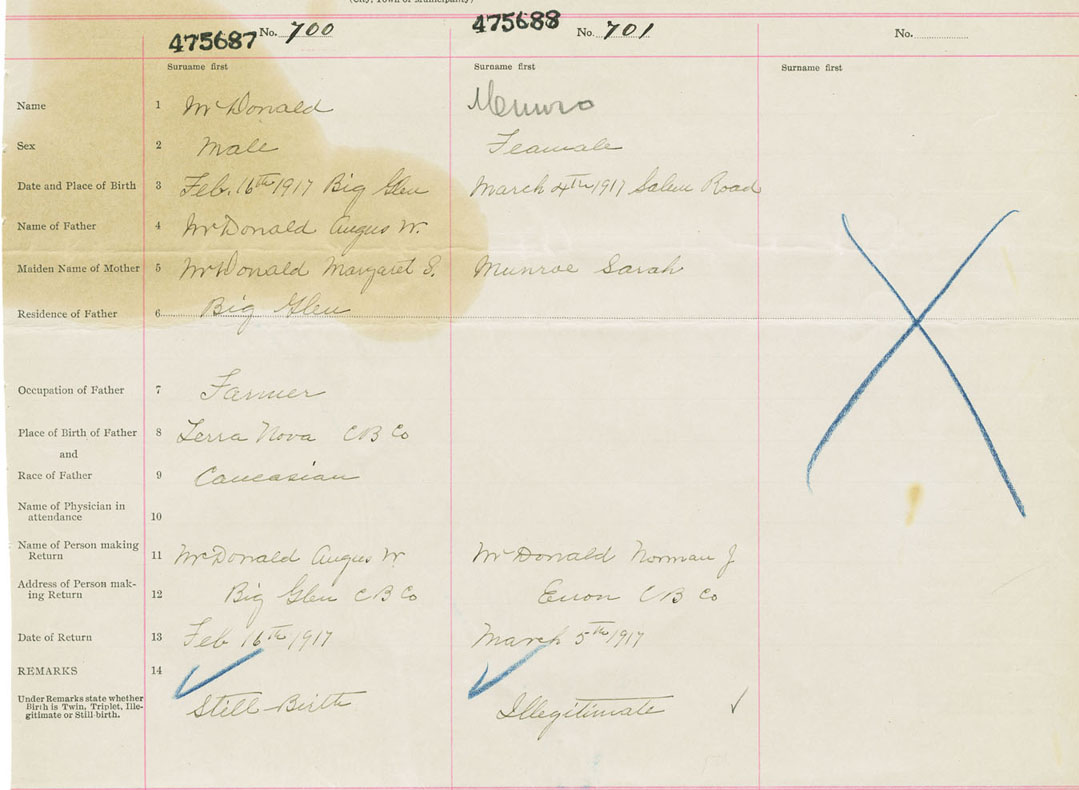 (City, Town or Municipality)
475687 No. 700 475688 No. 701 No.
Surname first Surname first Surname first
Name 1 McDonald Munro
Sex 2 Male Feamale
Date and Place of Birth 3 Feb. 16th 1917 Big Glen March 4th 1917 Salem Road
Name of Father 4 McDonald Angus W.
Maiden Name of Mother 5 McDonald Margaret S. Munroe Sarah
Residence of Father 6 Big Glen
Occupation of Father 7 Farmer
Place of Birth of Father 8 Terra Nova C B Co
and
Race of Father 9 Caucasian
Name of Physician in
attendance 10
Name of Person making
Return 11 McDonald Angus W. McDonald Norman J
Address of Person mak-
ing Return 12 Big Glen C B Co Enon C B Co
Date of Return 13 Feb 16th 1917 March 5th 1917
REMARKS 14
Under Remarks state whether
Birth is Twin, Triplet, Ille-
gitimate or Still-birth. Still-Birth Illegitimate